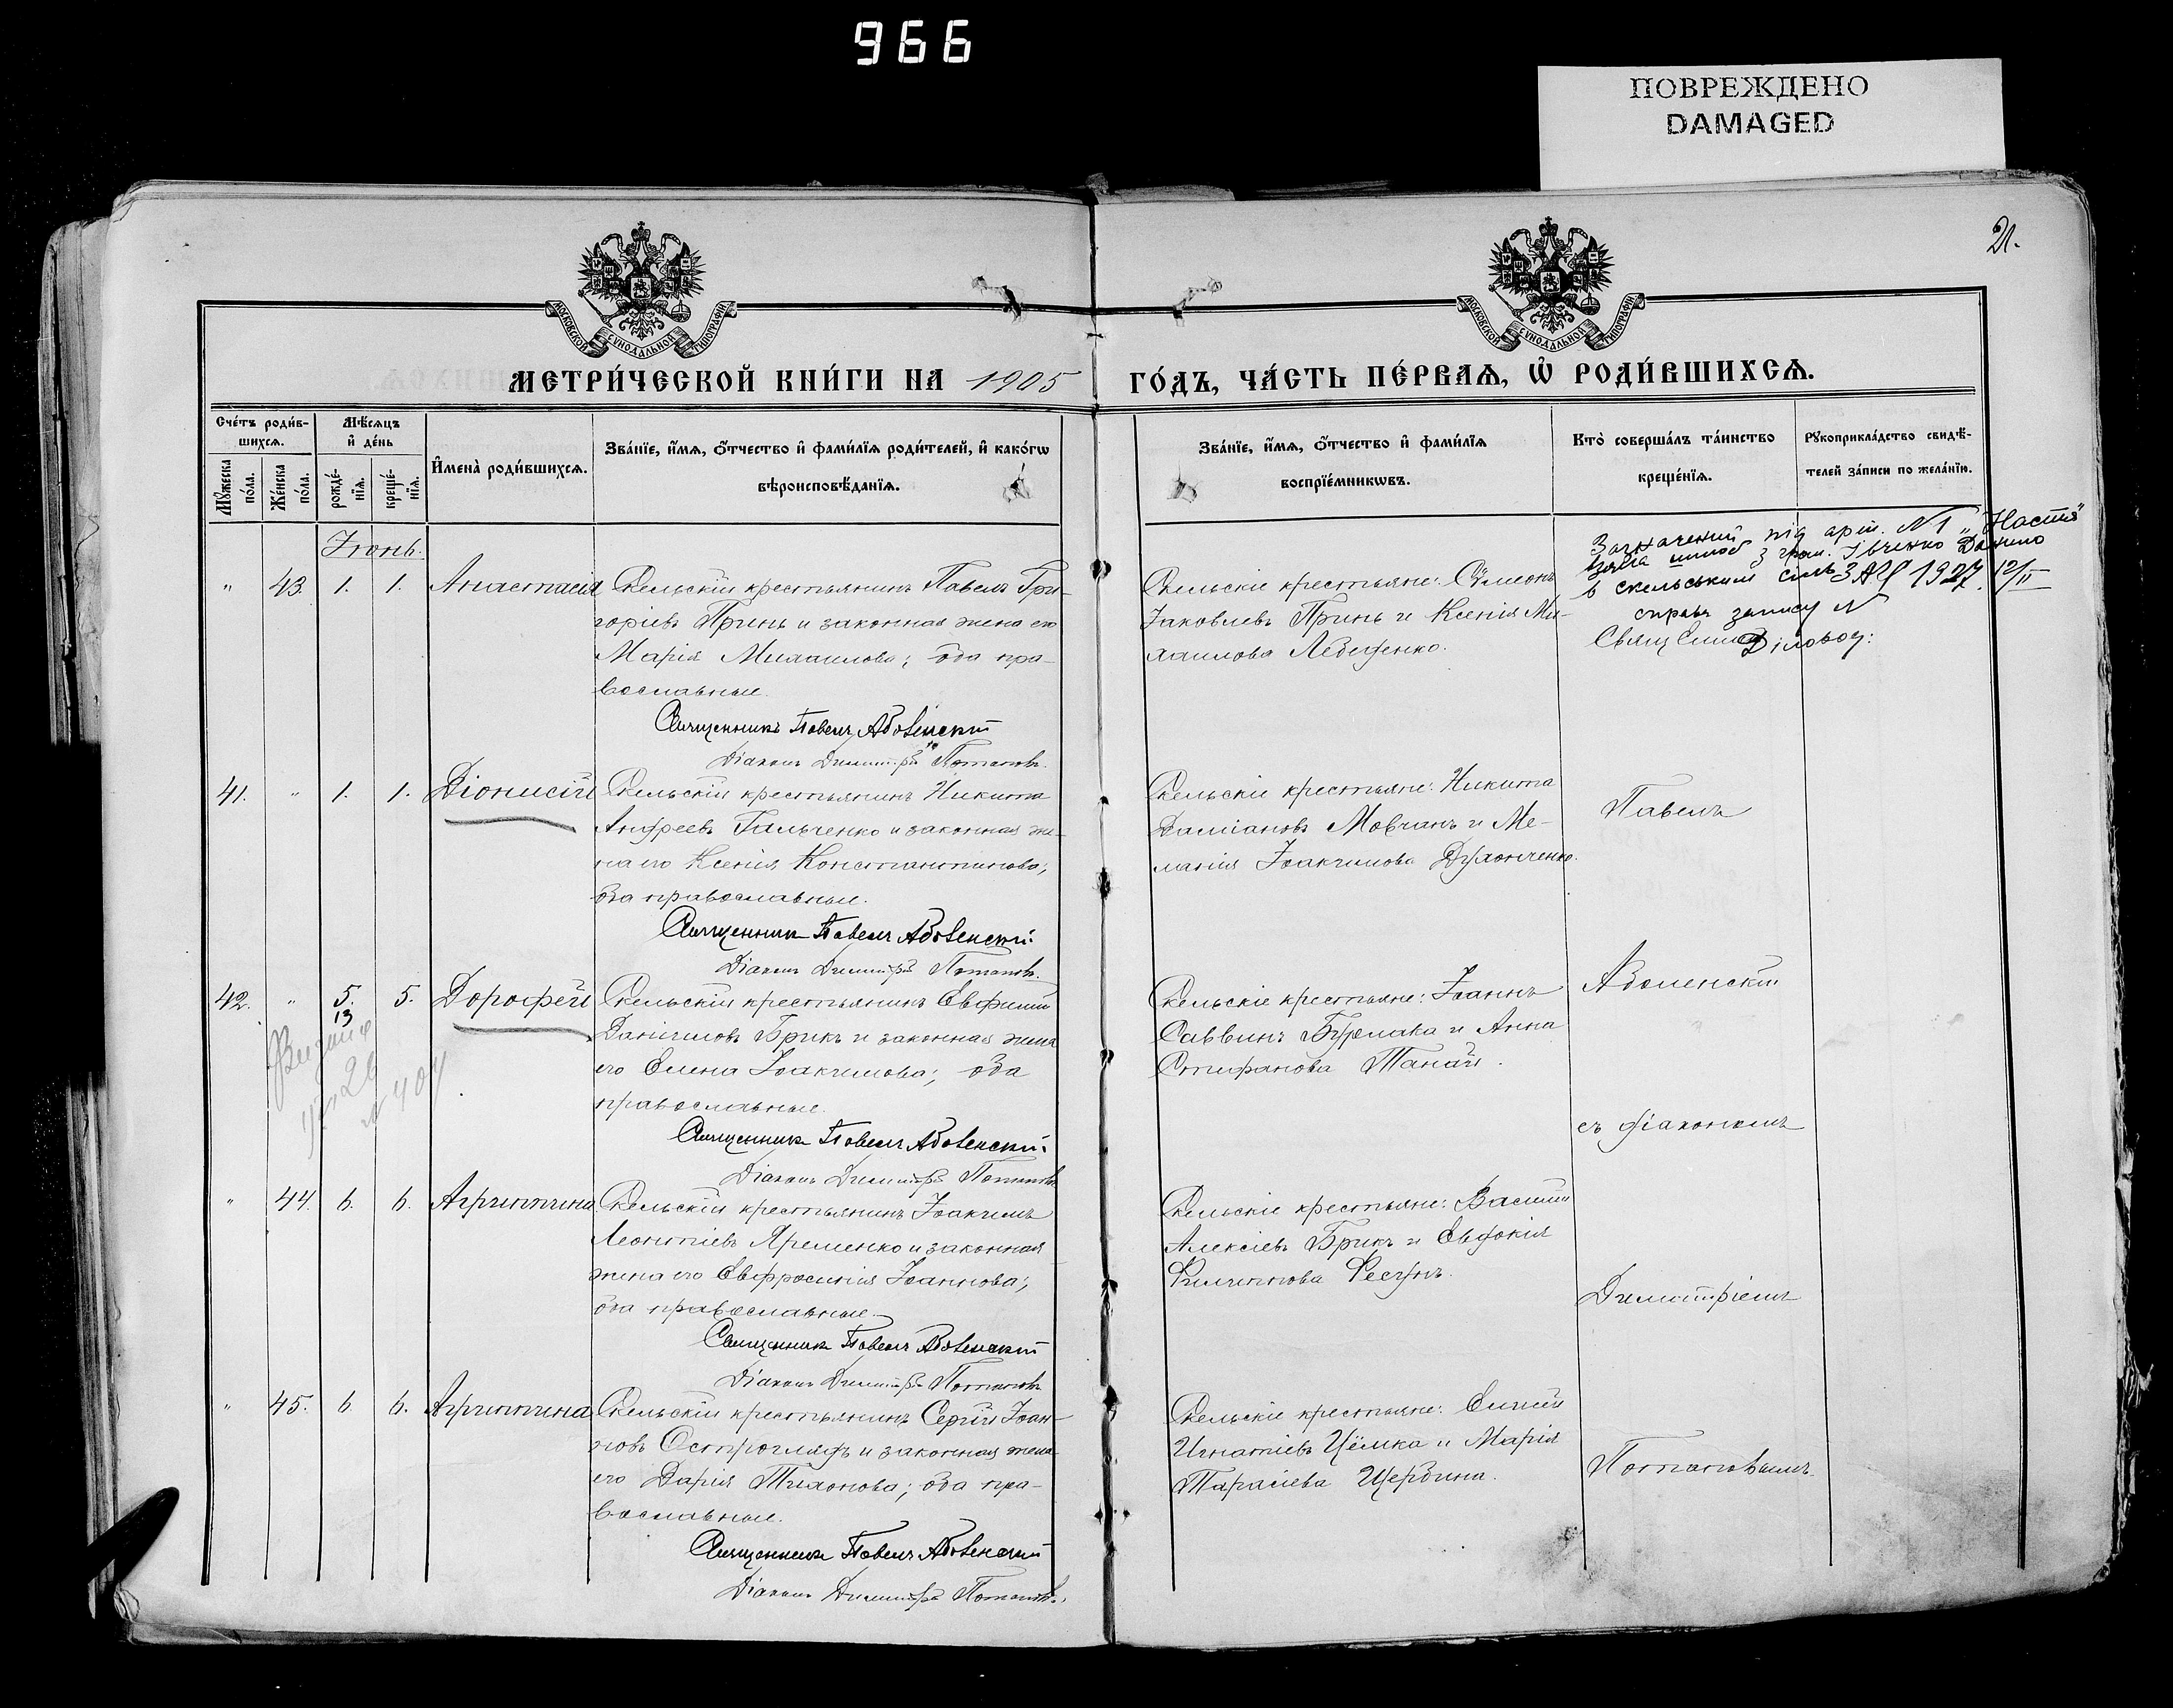 966
ПОВРЕЖДЕНО
DAMAGED
21.
МОСКОВСКОЙ СѴНОДАЛЬНОЙ ТИПОГРАФІИ
МОСКОВСКОЙ СѴНОДАЛЬНОЙ ТИПОГРАФІИ
МЕТРИ́ЧЕСКОЙ КНИ́ГИ НА 1905 ГО́ДЪ, ЧА́СТЬ ПЕ́РВАѦ, Ѡ҆ РОДИ́ВШИХСѦ.
Сче́тъ роди́в-
шихсѧ.
Мꙋ́жеска
по́ла.
Же́нска
по́ла.
Мѣ́сѧцъ
и҆ де́нь
рожде́-
нїѧ.
креще́-
нїѧ.
И҆мена̀ роди́вшихсѧ.
Зва́нїе, и҆́мѧ, ѻ҆́тчество и҆ фами́лїѧ роди́телей, и҆ како́гѡ
вѣроисповѣ́данїѧ.
Зва́нїе, и҆́мѧ, ѻ҆́тчество и҆ фами́лїѧ
воспрїе́мникѡвъ.
Кто̀ соверша́лъ та́инство
креще́нїѧ.
Рꙋкоприкла́дство свидѣ́-
телей за́писи по жела́нїю.
Іюнь.
" 43. 1. 1. Анастасія
Скельскій крестьянинъ Павелъ Гри-
горіевъ Принь и законная жена его
Марія Михаилова; оба пра-
вославные.
Священникъ Павелъ Аболенскій
Діаконъ Димитрій Потаповъ.
Скельскіе крестьяне: Сѵмеонъ
Іаковлевъ Принь и Ксенія Ми-
хаилова Лебеденко.
Зазначений під арт. N 1 „Настя"
взяла шлюб з гром. Івченко Данило
в скельським сіль ЗАГС 1927. 12/II
справа запису N
Діловод:
41. " 1. 1. Діонисій
Скельскій крестьянинъ Никита
Андреевъ Гальченко и законная же-
на его Ксенія Константинова;
оба православные.
Священникъ Павелъ Аболенскій.
Діаконъ Димитрій Потаповъ.
Скельскіе крестьяне: Никита
Даміановъ Мовчанъ и Ме-
ланія Іоакимова Духонченко.
Павелъ
42. " 5. 5. Дорофей
13
N 404
Скельскій крестьянинъ Евфимій
Даніиловъ Брикъ и законная жена
его Елена Іоакимова; оба
православные.
Священникъ Павелъ Аболенскій.
Діаконъ Димитрій Потаповъ
Скельскіе крестьяне: Іоаннъ
Саввинъ Бурлака и Анна
Стефанова Танай.
Аболенскій
съ діакономъ
" 44. 6. 6. Агриппина
Скельскій крестьянинъ Іоакимъ
Леонтіевъ Яременко и законная
жена его Евфросинія Іоаннова;
оба православные.
Священникъ Павелъ Аболенскій
Діаконъ Димитрій Потаповъ
Скельскіе крестьяне: Василій
Алексіевъ Брикъ и Евдокія
Филиппова Фесунъ.
Димитріемъ
" 45. 6. 6. Агриппина
Скельскій крестьянинъ Сергій Іоан-
новъ Остроглядъ и законная жена
его Дарія Тихонова; оба пра-
вославные.
Священникъ Павелъ Аболенскій
Діаконъ Димитрій Потаповъ.
Скельскіе крестьяне:
Игнатіевъ Цёмка и Марія
Тарасіева Щербина.
Потаповымъ.